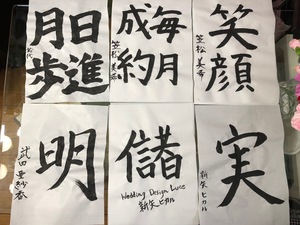 日進
月歩
毎月
成約
笑顔
笠松 美希
明
儲
Wedding Design Luce
新矢ヒカル
実
新矢ヒカル